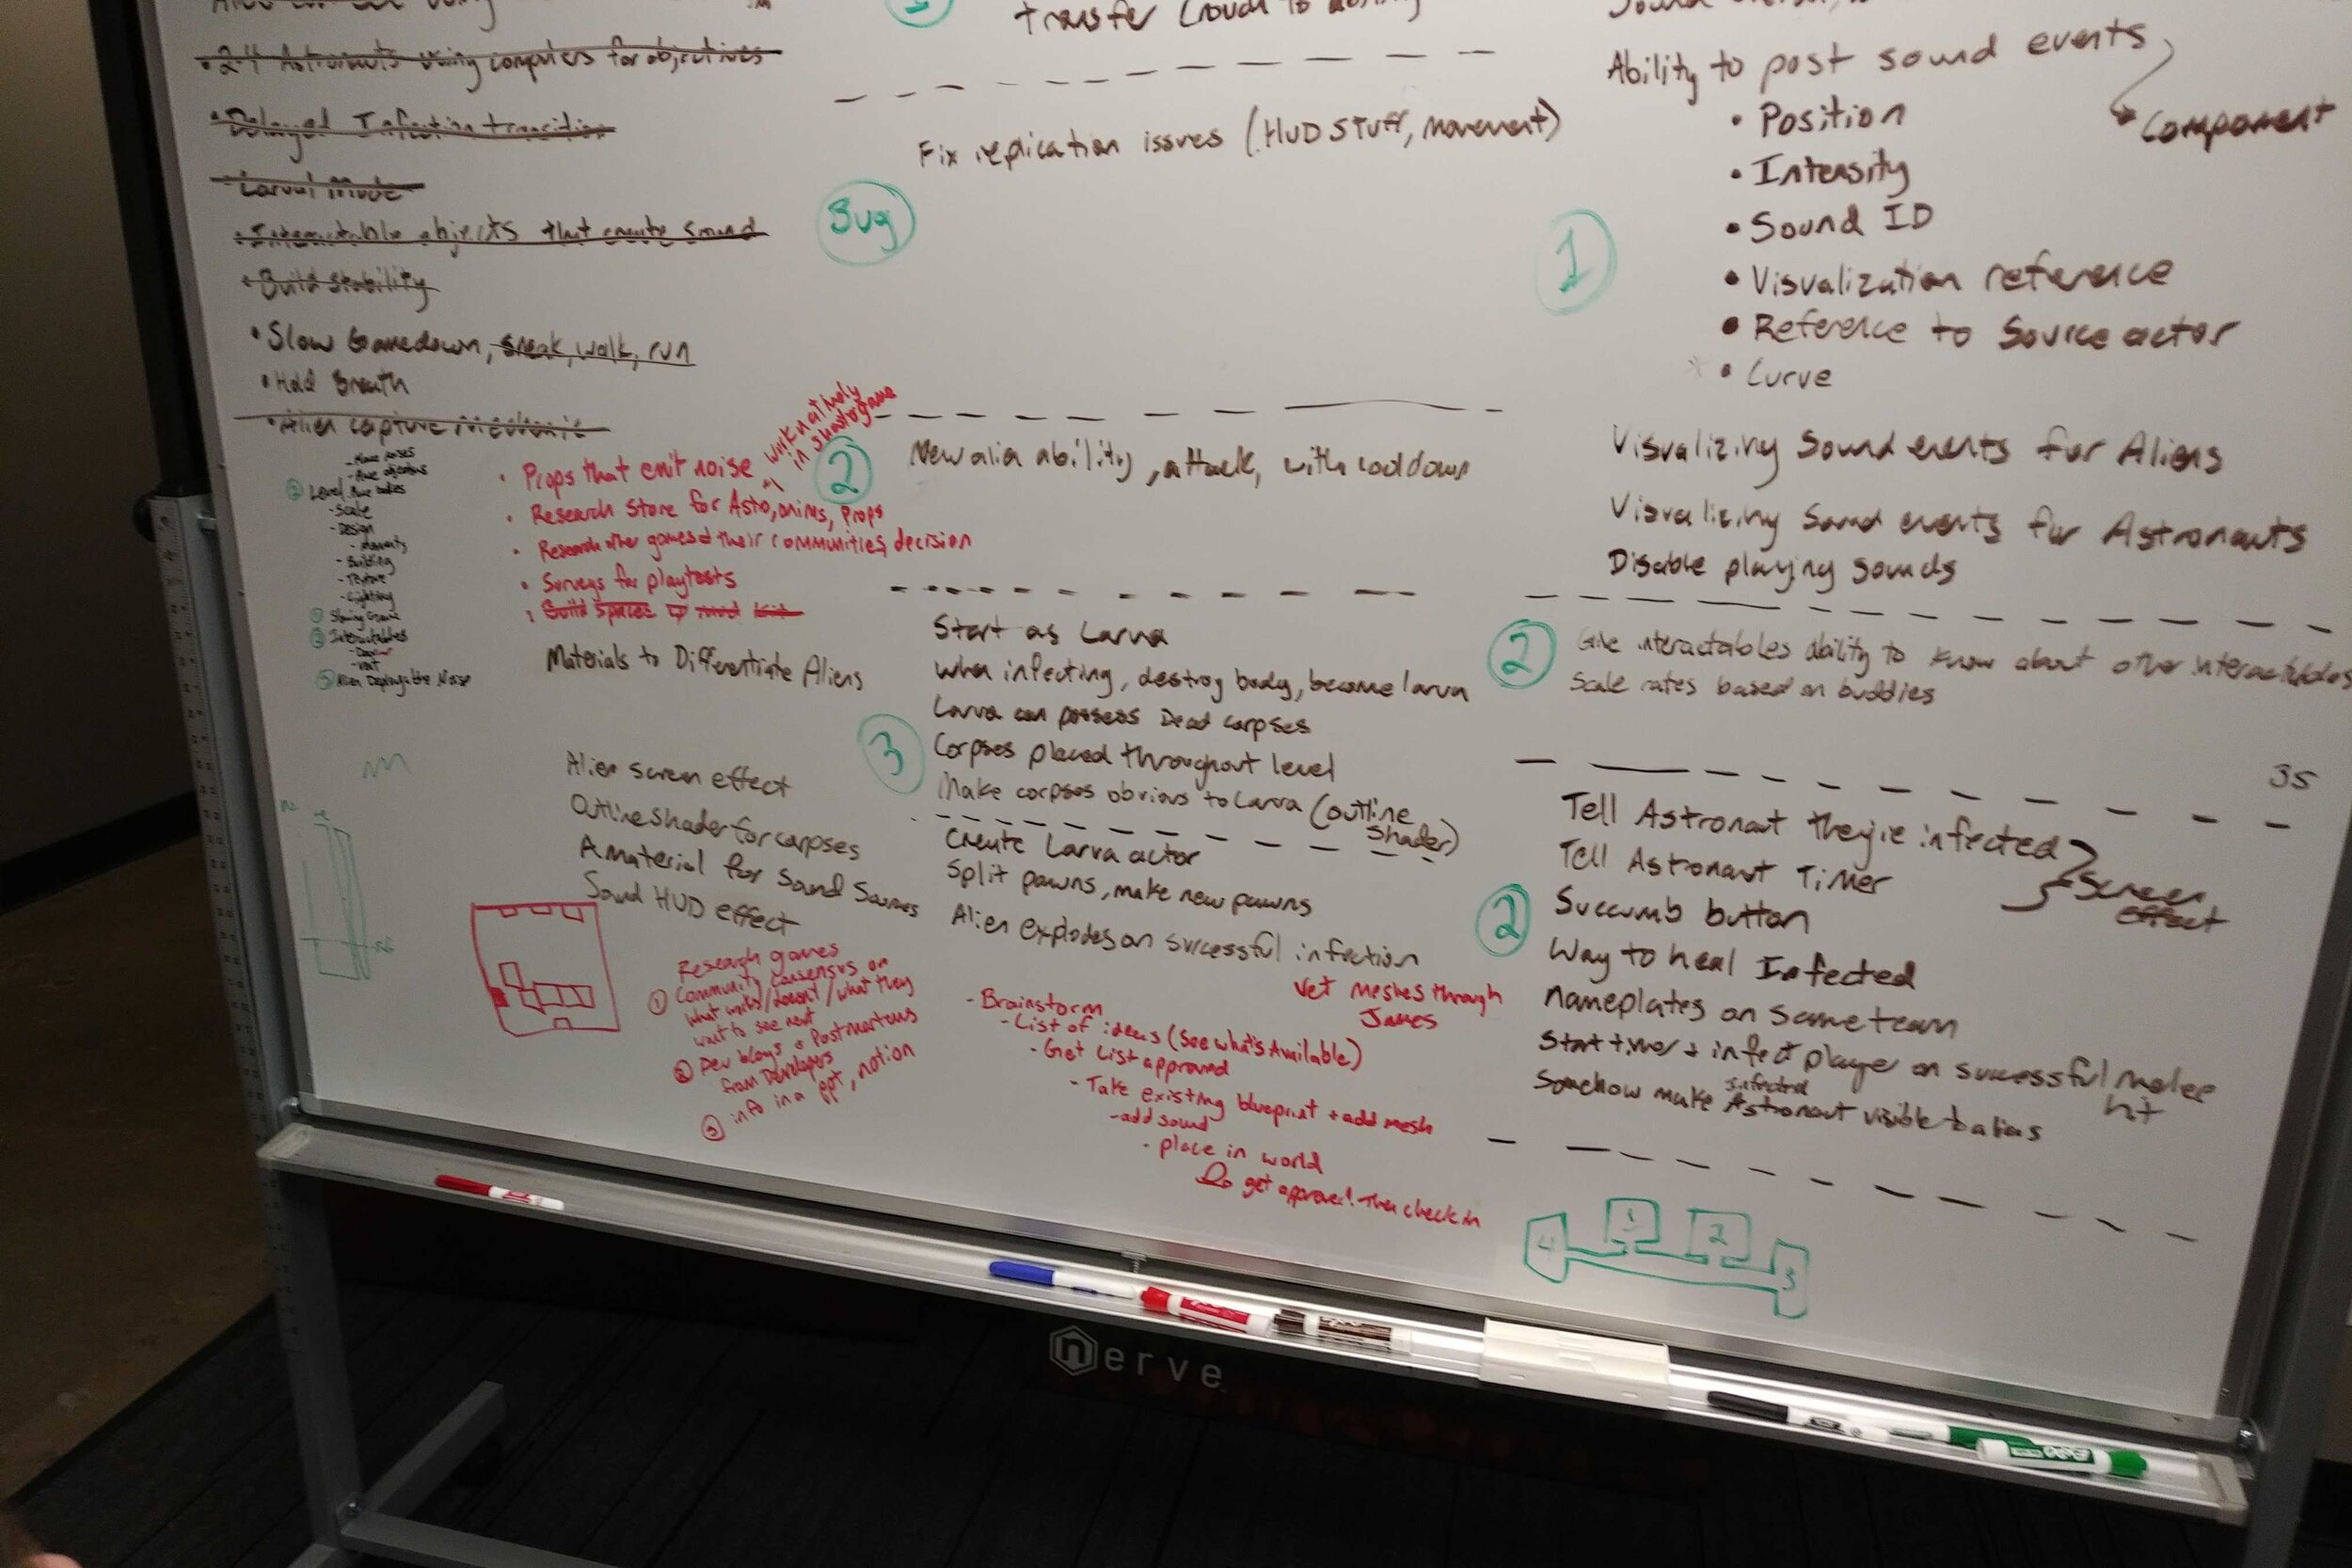 • 2-4 Astronauts using computers for objectives
• Delayed Infection transition
• Larval Mode
• Interactable objects that create sound
• Build stability
• Slow Gamedown, sneak, walk, run
• Hold Breath
• Alien capture mechanic
- More noises
- More objectives
Level More bodies
- Scale
- Design
- Building
- Texture
- Lighting
① Slowing Game
Interactables
- Door
- Vent
Alien Deploy the Noise
• Props that emit noise
work natively
in shootergame
• Research Store for Astro, anims, Props
• Research other games & their communities decision
• Surveys for playtests
• Build spaces w mod kit
Materials to Differentiate Aliens
Alien screen effect
Outline shader for corpses
A material for Sound Sources
Sound HUD effect
Research games
① Community Consensus on
what works/doesnt/what they
want to see next
② Dev blogs & Postmortems
from Developers
③ info in a ppt, notion
transfer
Fix replication issues (HUD Stuff, Movement)
Bug
2
New alien ability, attack, with cooldown
Start as Larva
when infecting, destroy body, become larva
Larva can possess Dead corpses
3
Corpses placed throughout level
Make corpses obvious to Larva (outline
shader)
Create Larva actor
Split pawns, make new pawns
Alien explodes on successful infection
Vet meshes through
James
- Brainstorm
- List of ideas (See what's Available)
- Get list approved
- Take existing blueprint + add mesh
- add sound
- place in world
get approval. Then check in
Ability to post sound events
Component
• Position
• Intensity
• Sound ID
1
• Visualization reference
• Reference to Source actor
• Curve
Visualizing Sound events for Aliens
Visualizing Sound events for Astronauts
Disable playing sounds
2
Give interactables ability to know about other interactables
Scale rates based on buddies
35
Tell Astronaut they're infected
Tell Astronaut Timer
Screen
effect
2
Succumb button
Way to heal Infected
nameplates on same team
Start timer + infect player on successful melee
hit
Somehow make infected Astronaut visible to aliens
4 1 2 3
nerve